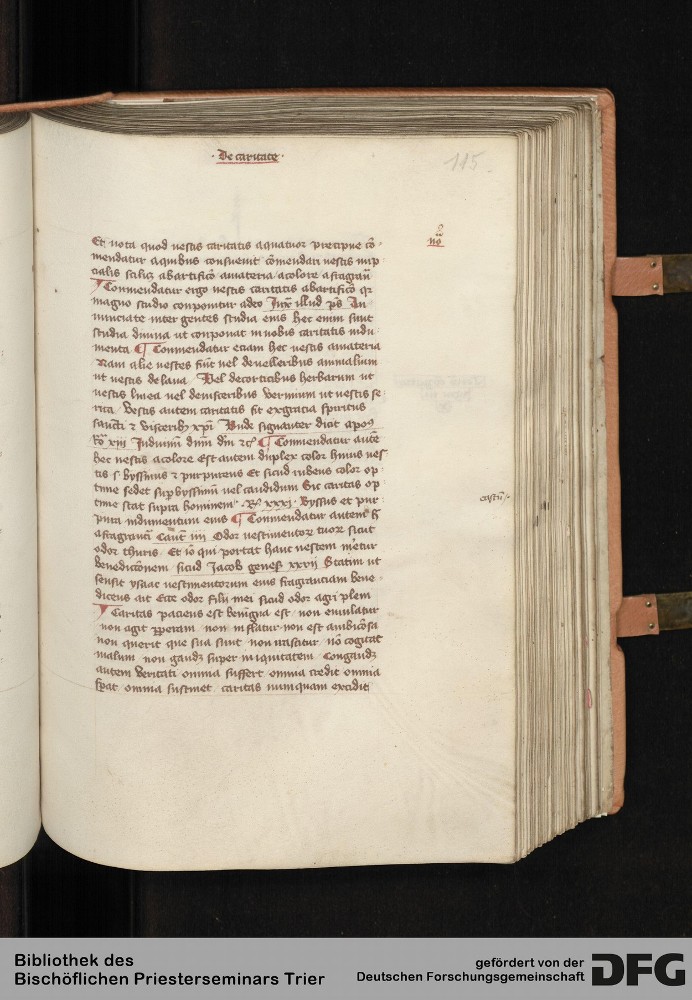 · De caritate ·
115.
Et nota quod vestis caritatis aquatuor precipue cō-
mendatur aquibus consuevit cōmendari vestis mp
cialis scilicz abartificō amateria acolore afragrāti
Conmendatur ergo vestis caritatis abartificō qr
magno studio conponitur adeo Iuxᵃ illud ps An
nunciate inter gentes studia eius hec enim sunt
studia divina ut conponat in vobis caritatis indu-
menta ¶ Conmendatur etiam hec vestis amateria
Nam alie vestes sūt vel develleribus animalium
ut vestis delana Vel decorticibus herbarum ut
vestis linea vel deinsceribus vermium ut vestis se-
rica Vestis autem caritatis fit exgratia spiritus
sancti ⁊ visceribꝫ xpi Unde signanter dicit apoꝰ
Rō xiii Induimī dnm̄ dn̄ ⁊c̄ ¶ Conmendatur autē
hec vestis acolore Est autem duplex color huius ves
tis s byssinus ⁊ purpureus Et sicud rubeus color op-
time sedet sup byssinū vel candidum Sic caritas op
time stat supra hominem xxxi Byssus et pur-
pura indumentum eius ¶ Conmendatur autem h̄
afragrancā Cant iiii Odor vestimentoꝝ tuoꝝ sicut
odor thuris Et iō qui portat hanc vestem m̄etur
benedictōnem sicud Jacob genes xxvii Statim ut
sensit ysaac vestimentorum eius fragranciam bene-
dicens ait Ecce odor filii mei sicud odor agri plem
Caritas paciens est benigna est non emulatur
non agit ꝑperam non inflatur non est ambicōsa
non querit que sua sunt non irascitur nō cogitat
malum non gaudꝫ super iniquitatem Congaudꝫ
autem veritati omnia suffert omnia credit omnia
sꝑat omnia sustinet caritas numquam excidit
nō
Bibliothek des
Bischöflichen Priesterseminars Trier
gefördert von der
Deutschen Forschungsgemeinschaft
DFG